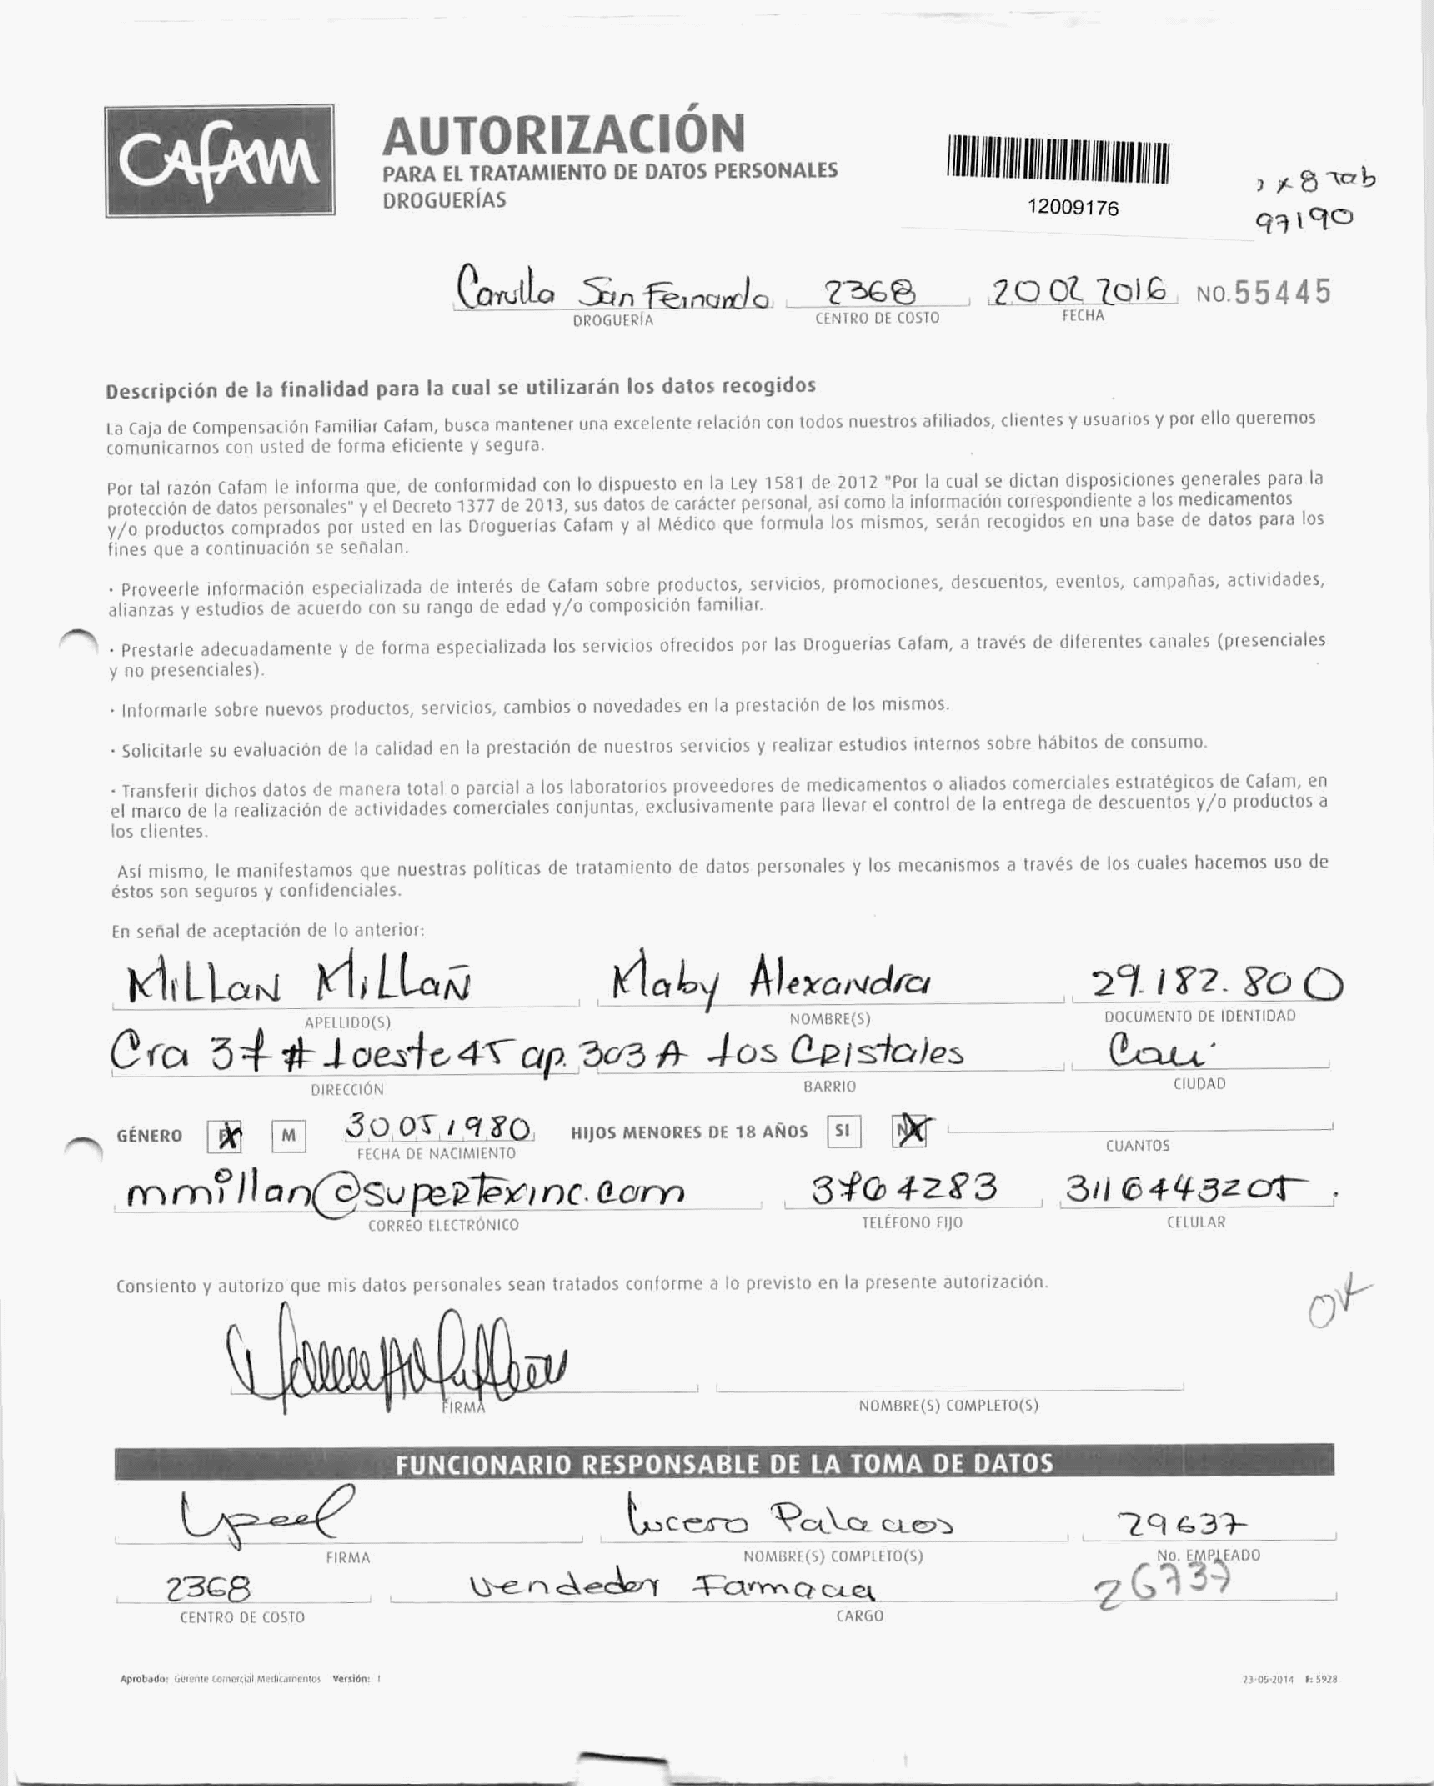 CAFAM
AUTORIZACIÓN
PARA EL TRATAMIENTO DE DATOS PERSONALES
DROGUERÍAS
12009176
x 8 Tab
97190
San Fernando 2368 20 02 2016 NO.55445
DROGUERÍA CENTRO DE COSTO FECHA
Descripción de la finalidad para la cual se utilizarán los datos recogidos
La Caja de Compensación Familiar Cafam, busca mantener una excelente relación con todos nuestros afiliados, clientes y usuarios y por ello queremos
comunicarnos con usted de forma eficiente y segura.
Por tal razón Cafam le informa que, de conformidad con lo dispuesto en la Ley 1581 de 2012 "Por la cual se dictan disposiciones generales para la
protección de datos personales" y el Decreto 1377 de 2013, sus datos de carácter personal, así como la información correspondiente a los medicamentos
y/o productos comprados por usted en las Droguerías Cafam y al Médico que formula los mismos, serán recogidos en una base de datos para los
fines que a continuación se señalan.
· Proveerle información especializada de interés de Cafam sobre productos, servicios, promociones, descuentos, eventos, campañas, actividades,
alianzas y estudios de acuerdo con su rango de edad y/o composición familiar.
· Prestarle adecuadamente y de forma especializada los servicios ofrecidos por las Droguerías Cafam, a través de diferentes canales (presenciales
y no presenciales).
· Informarle sobre nuevos productos, servicios, cambios o novedades en la prestación de los mismos.
· Solicitarle su evaluación de la calidad en la prestación de nuestros servicios y realizar estudios internos sobre hábitos de consumo.
· Transferir dichos datos de manera total o parcial a los laboratorios proveedores de medicamentos o aliados comerciales estratégicos de Cafam, en
el marco de la realización de actividades comerciales conjuntas, exclusivamente para llevar el control de la entrega de descuentos y/o productos a
los clientes.
Así mismo, le manifestamos que nuestras políticas de tratamiento de datos personales y los mecanismos a través de los cuales hacemos uso de
éstos son seguros y confidenciales.
En señal de aceptación de lo anterior:
Millan Millan Maby Alexandra 29.182.800
APELLIDO(S) NOMBRE(S) DOCUMENTO DE IDENTIDAD
Cra 37 # 1oeste 45 ap. 303 A Los Cristales Cali
DIRECCIÓN BARRIO CIUDAD
GÉNERO F M 30 05 1980 HIJOS MENORES DE 18 AÑOS SI NO
FECHA DE NACIMIENTO CUANTOS
mmillan@supertexinc.com 3764283 3116443205
CORREO ELECTRÓNICO TELÉFONO FIJO CELULAR
Consiento y autorizo que mis datos personales sean tratados conforme a lo previsto en la presente autorización.
OK
FIRMA NOMBRE(S) COMPLETO(S)
FUNCIONARIO RESPONSABLE DE LA TOMA DE DATOS
Lucero Palacios 29637
FIRMA NOMBRE(S) COMPLETO(S) No. EMPLEADO
2368 Vendedor Farmacia 26737
CENTRO DE COSTO CARGO
Aprobado: Gerente Comercial Medicamentos Versión: 1
23-05-2014 F: 5928